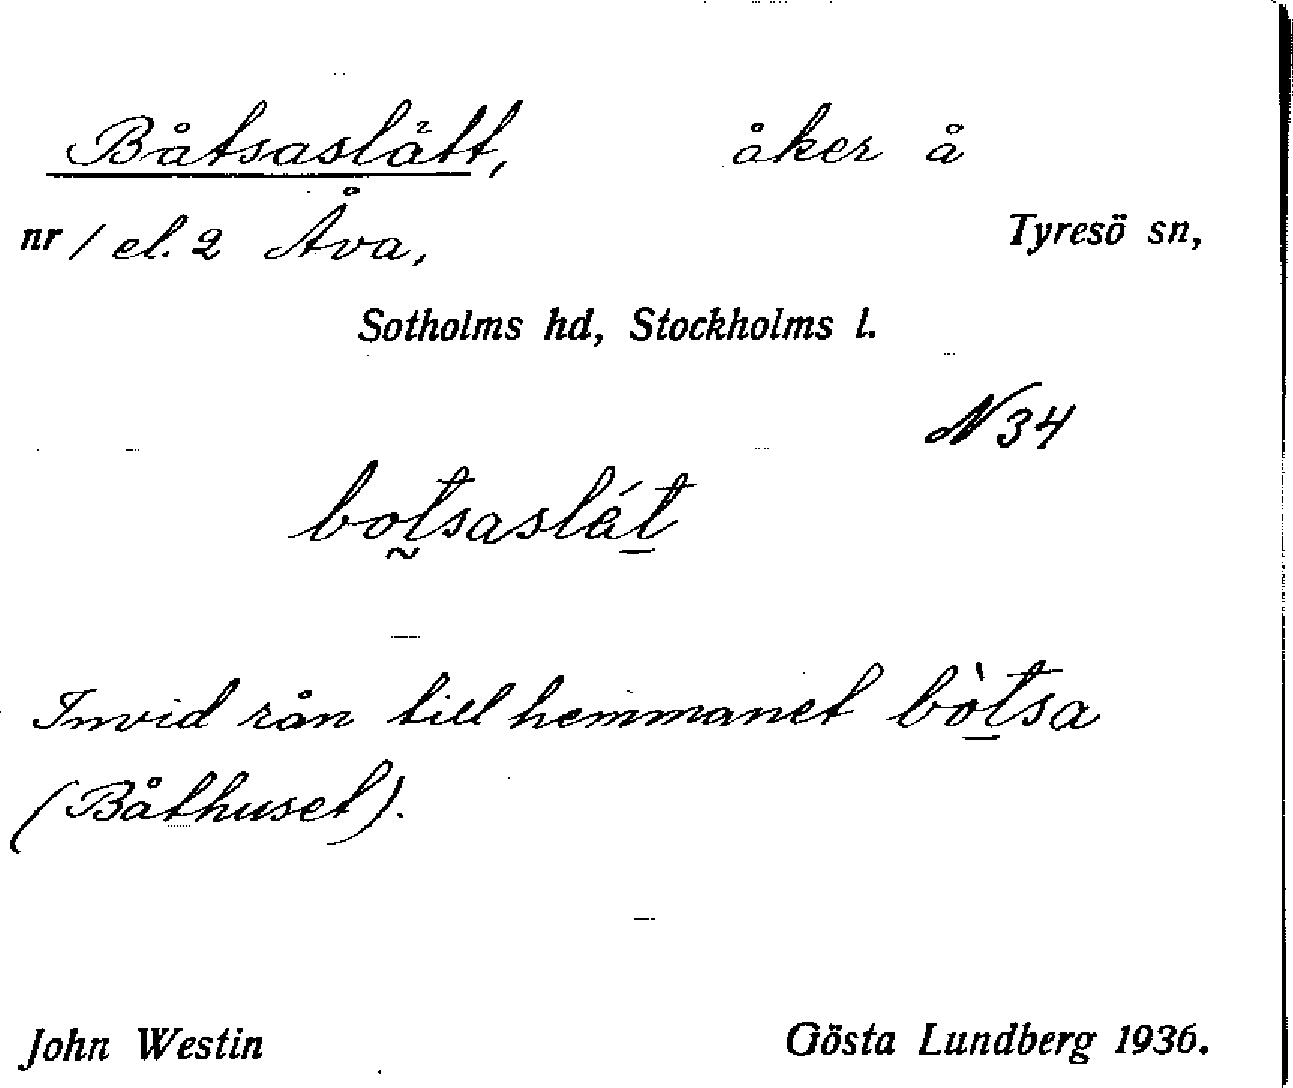 Båtsaslätt, åker å
nr 1 el. 2 Åva, Tyresö sn,
Sotholms hd, Stockholms l.
N 34
bo̰t̲saslát̲
Invid rån till hemmanet bòt̲sa
(Båthuset).
John Westin Gösta Lundberg 1936.